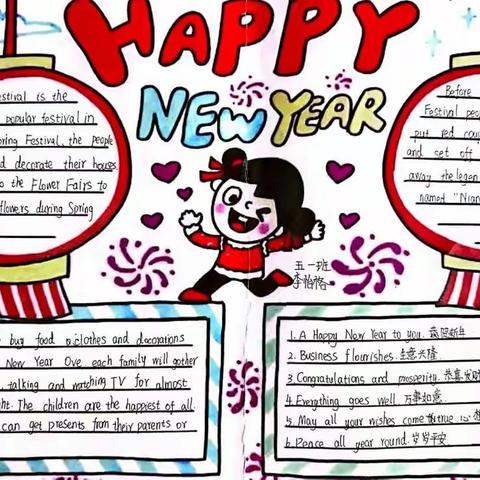 HAPPY
NEW YEAR
estival is the
popular festival in
ring Festival, the people
d decorate their houses.
o the Flower Fairs to
flowers during Spring
Before
Festival peo
put red coup
and set off
away the legen
named "Nian
五一班
李怡格
buy food clothes and decorations
New Year Ove each family will gother
talking and watching TV for almost
ht. The children are the happiest of all
can get presents from their parents or
1. A Happy New Year to you. 恭贺新年
2. Business flourishes. 生意兴隆
3. Congratulations and prosperity. 恭喜发财
4. Everything goes well 万事如意
5. May all your wishes come true. 心想
6. Peace all year round. 岁岁平安